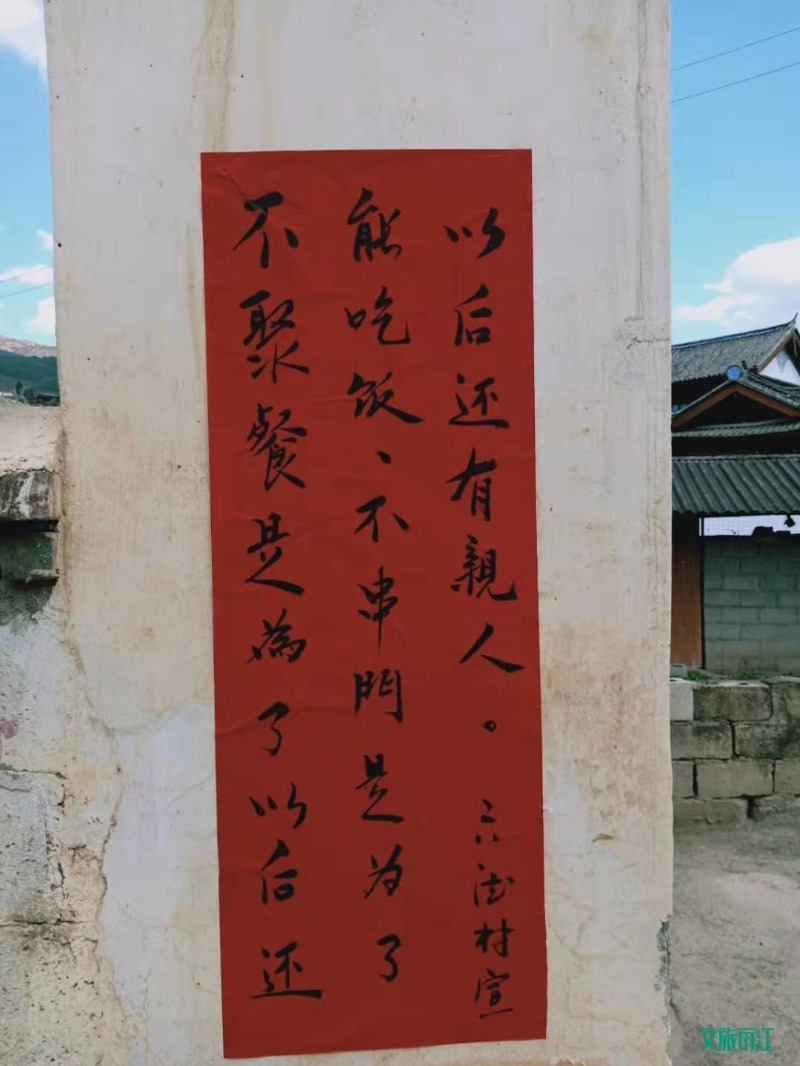 不聚餐是為了以后还
能吃饭、不串門是为了
以后还有親人。
六德村宣
文旅丽江